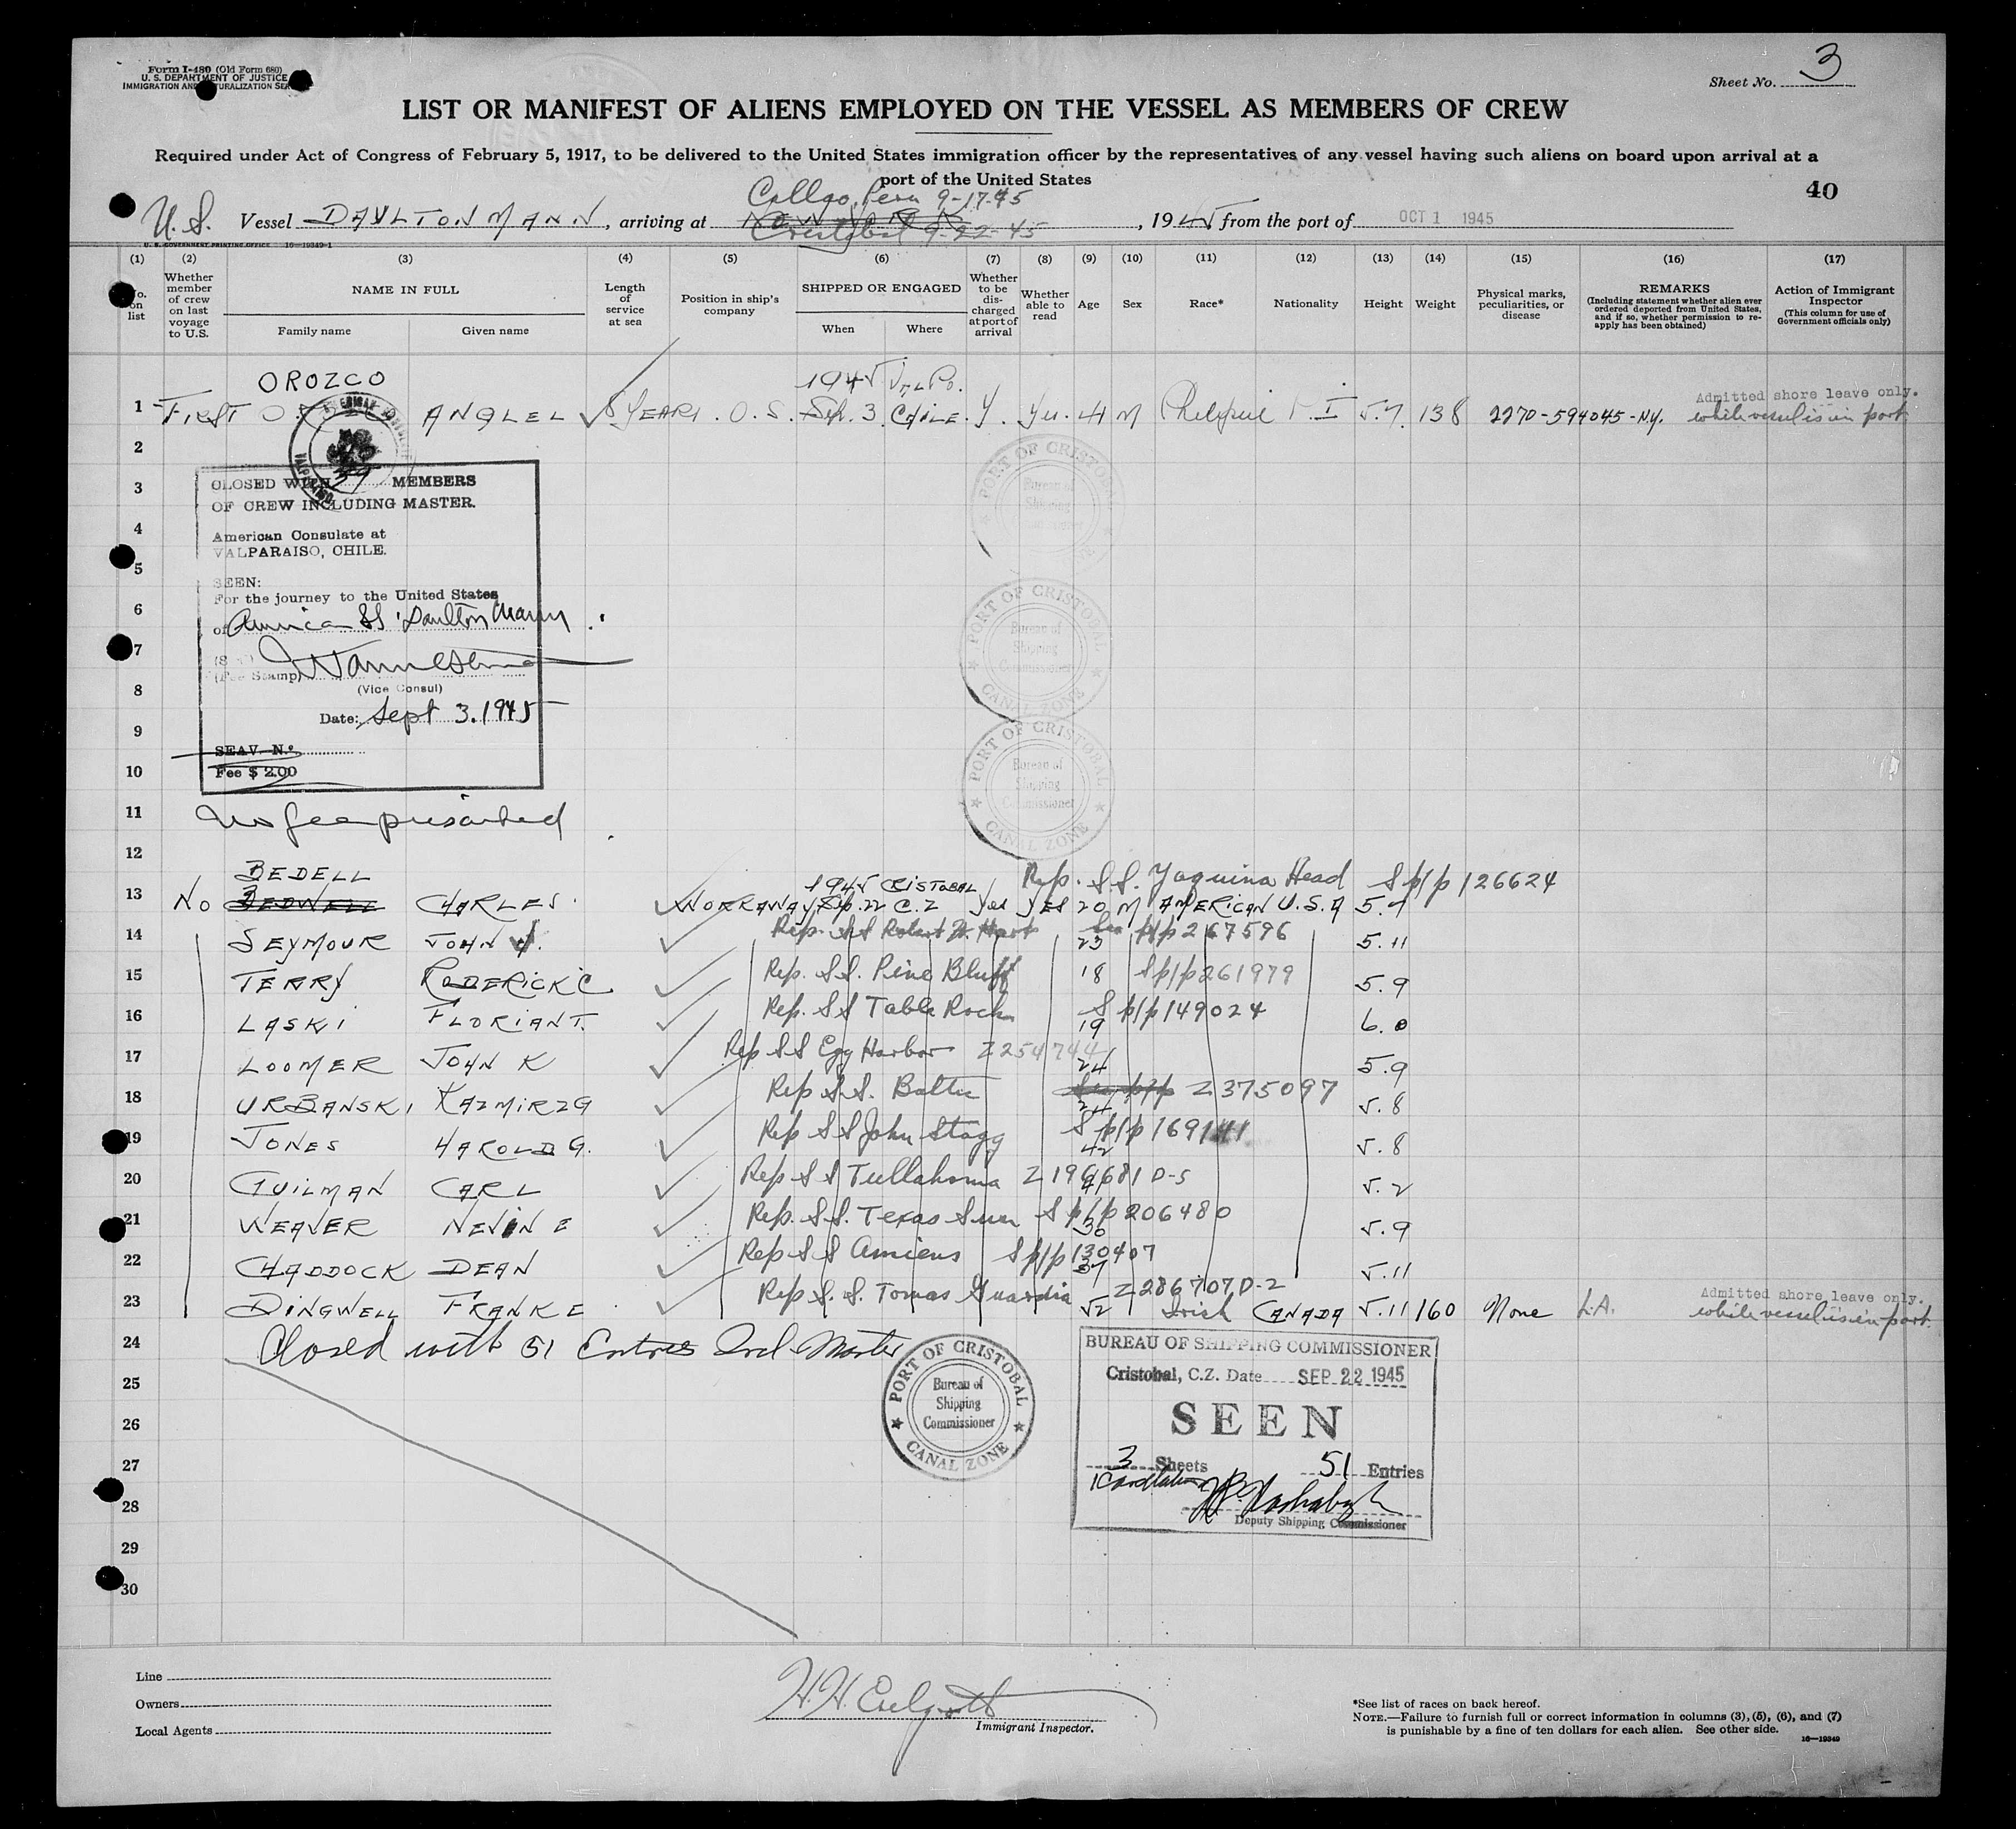 Form I-480 (Old Form 680)
U. S. DEPARTMENT OF JUSTICE
IMMIGRATION AND NATURALIZATION SER
Sheet No. 3
LIST OR MANIFEST OF ALIENS EMPLOYED ON THE VESSEL AS MEMBERS OF CREW
Required under Act of Congress of February 5, 1917, to be delivered to the United States immigration officer by the representatives of any vessel having such aliens on board upon arrival at a
port of the United States
40
Callao, Peru 9-17-45
U.S. Vessel DAULTON MANN, arriving at , 1945 from the port of OCT 1 1945
Cristobal 9-22-45
U. S. GOVERNMENT PRINTING OFFICE 16—19349-1
(1) (2) (3) (4) (5) (6) (7) (8) (9) (10) (11) (12) (13) (14) (15) (16) (17)
No. on list
Whether member of crew on last voyage to U.S.
NAME IN FULL
Family name Given name
Length of service at sea
Position in ship's company
SHIPPED OR ENGAGED
When Where
Whether to be discharged at port of arrival
Whether able to read
Age
Sex
Race*
Nationality
Height
Weight
Physical marks, peculiarities, or disease
REMARKS
(Including statement whether alien ever ordered deported from United States, and if so, whether permission to reapply has been obtained)
Action of Immigrant Inspector
(This column for use of Government officials only)
OROZCO 1945
1 FIRST ANGLEL 5 YEARS. O.S. Sep. 3 CHILE. Y. yes. 41 M P.I 5.7. 138 2270-594045-N.Y. Admitted shore leave only.
while vessel is in port.
2
3
4
5
6
7
8
9
10
11
12
CLOSED WITH 39 MEMBERS
OF CREW INCLUDING MASTER.
American Consulate at
VALPARAISO, CHILE.
SEEN:
For the journey to the United States
of American SS "Daulton Mann
(Seal)
(Fee Stamp)
(Vice Consul)
Date: Sept 3. 1945
SEAV. N.º
Fee $ 2.00
No fee prescribed
PORT OF CRISTOBAL
Bureau of
Shipping
PORT OF CRISTOBAL
Bureau of
Shipping
Commissioner
CANAL ZONE
PORT OF CRISTOBAL
Bureau of
Shipping
Commissioner
CANAL ZONE
BEDELL 1945 CRISTOBAL Rep. S.S. Yaquina Head S p/p 126624
13 No BEDWELL CHARLES. NORRAWAY Sep. 22 C.Z yes YES 20 M AMERICAN U.S.A 5.7
14 SEYMOUR JOHN J. Rep. SS Robert Hart p/p 267596 23 5.11
15 TERRY RODERICK C Rep. S.S. Pine Bluff 18 S p/p 261979 5.9
16 LASKI FLORIAN T. Rep. S S Table Rock S p/p 149024 19 6.0
17 LOOMER JOHN K Rep SS Egg Harbor Z 254744 24 5.9
18 URBANSKI KAZMIRZ G Rep S.S. Z 375097 24 5.8
19 JONES HAROLD G. Rep S S John Stagg S p/p 169141 42 5.8
20 GUILMAN CARL Rep S S Tullahoma D-S 5.2
21 WEAVER NEVIN E Rep. S.S. Texas Sun S p/p 206480 30 5.9
22 CHADDOCK DEAN Rep S S Amiens S p/p 130407 37 5.11
23 DINGWELL FRANK E Rep S. S. Tomas Guardia Z 286707 D-2 52 Irish CANADA 5.11 160 None L.A. Admitted shore leave only.
while vessel is in port.
24 Closed with 51 Entries Incl Master
25
26
27
28
29
30
PORT OF CRISTOBAL
Bureau of
Shipping
Commissioner
CANAL ZONE
BUREAU OF SHIPPING COMMISSIONER
Cristobal, C.Z. Date SEP 22 1945
SEEN
3 Sheets 51 Entries
Deputy Shipping Commissioner
Line
Owners
Local Agents
Immigrant Inspector.
*See list of races on back hereof.
NOTE.—Failure to furnish full or correct information in columns (3), (5), (6), and (7)
is punishable by a fine of ten dollars for each alien. See other side.
16—19349